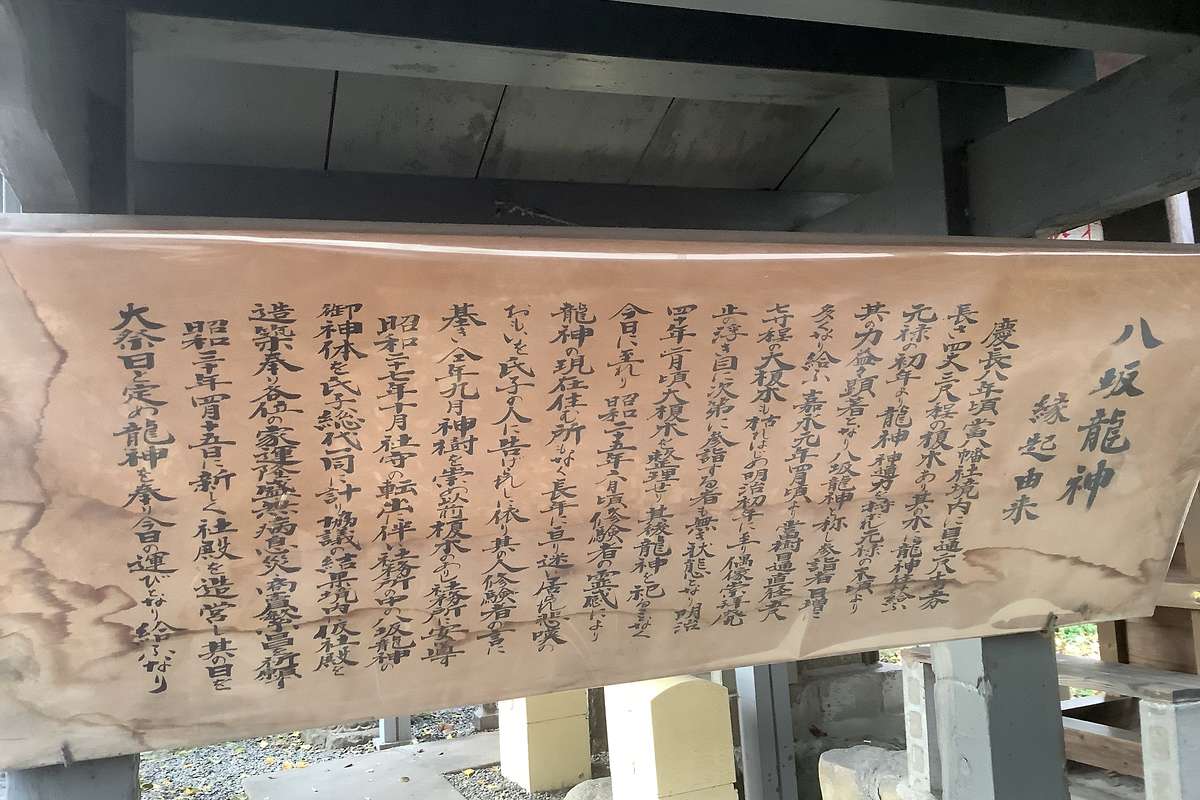 八坂龍神
縁起由来
慶長八年頃當八幡社境内に目通八尺五寸
長さ四丈二尺程の榎木あり其の木に龍神棲給ふ
元禄の初年より龍神神尊力を得れ元禄の末頃より
其の力益々顕著となり八坂龍神と称し参詣者日増に
多くなり給ふ嘉永元年四月頃より當樹目通直径一丈
七寸程の大榎木も枯れはじめ明治初年に至り偶像崇拝廃
止の導き自に次第に参詣する者も無き状態となり明治
四十年二月頃大榎木を整理せり其後龍神を祀るなく
今日に至れり 昭和二十五年八月頃修験者の霊感により
龍神の現在住む所もなく長年に亘り迷ひ居れ悲嘆の
おもいを氏子の人に告げれし依り其の人修験者の言に
基き仝年九月神樹を崇め前榎木あり社務所に安専
昭和二十七年十月社寺の転出に伴い社務所の中の八坂龍神
御神体を氏子総代一同に計り協議の結果境内に仮社殿を
造築奉り各位の家運隆盛無病息災商売繁昌を祈願す
昭和三十年四月十五日に新しく社殿を造営し其の日を
大祭日と定め龍神を奉り今日の運びとなり給ふなり